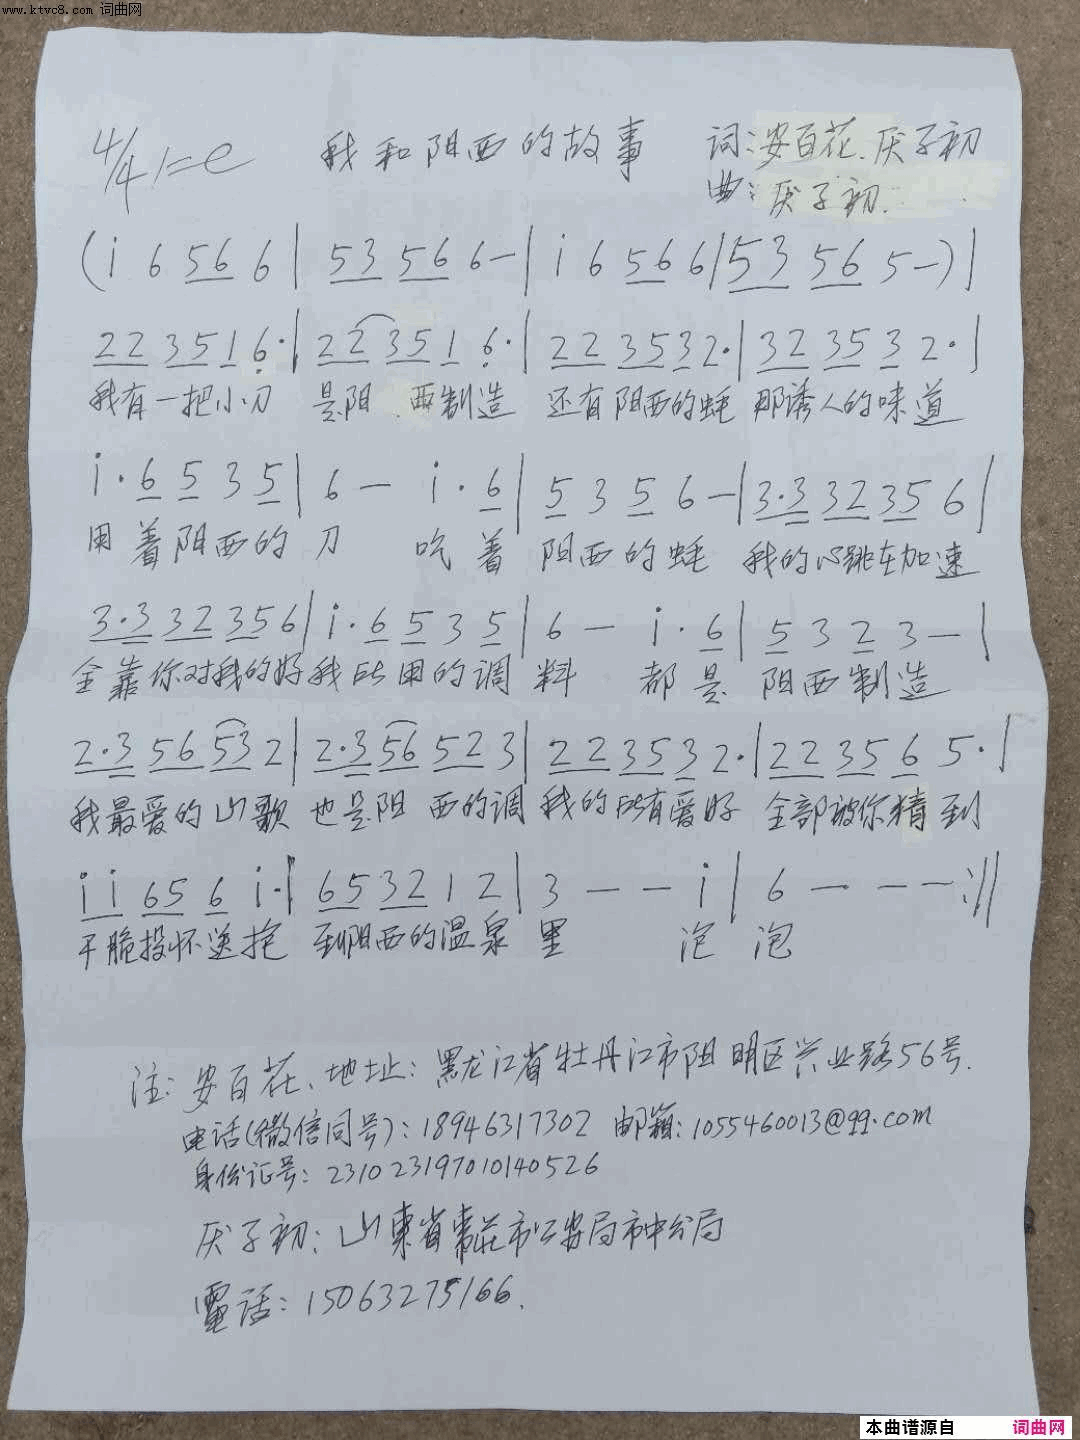 www.ktvc8.com 词曲网
4/4 1=e 我和阳西的故事 词:安百花、厌子初
曲:厌子初
(i 6 56 6 | 53 56 6 - | i 6 56 6 | 53 56 5 - ) |
22 35 1 6· | 22 35 1 6· | 22 35 3 2· | 32 35 3 2· |
我有一把小刀 是阳西制造 还有阳西的蚝 那诱人的味道
i· 6 5 3 5 | 6 - i· 6 | 5 3 5 6 - | 3·3 32 35 6 |
用着阳西的刀 吃着阳西的蚝 我的心跳在加速
3·3 32 35 6 | i· 6 5 3 5 | 6 - i· 6 | 5 3 2 3 - |
全靠你对我的好 我所用的调料 都是阳西制造
2·3 56 53 2 | 2·3 56 52 3 | 22 35 3 2· | 22 35 6 5· |
我最爱的山歌 也是阳西的调 我的所有爱好 全部被你猜到
i i 65 6 i· | 65 32 1 2 | 3 - - i | 6 - - - :||
干脆投怀送抱 到阳西的温泉里 泡泡
注:安百花、地址:黑龙江省牡丹江市阳明区兴业路56号.
电话(微信同号):18946317302 邮箱:1055460013@qq.com
身份证号:231023197010140526
厌子初:山东省枣庄市公安局市中分局
電话:15063275166.
本曲谱源自 词曲网